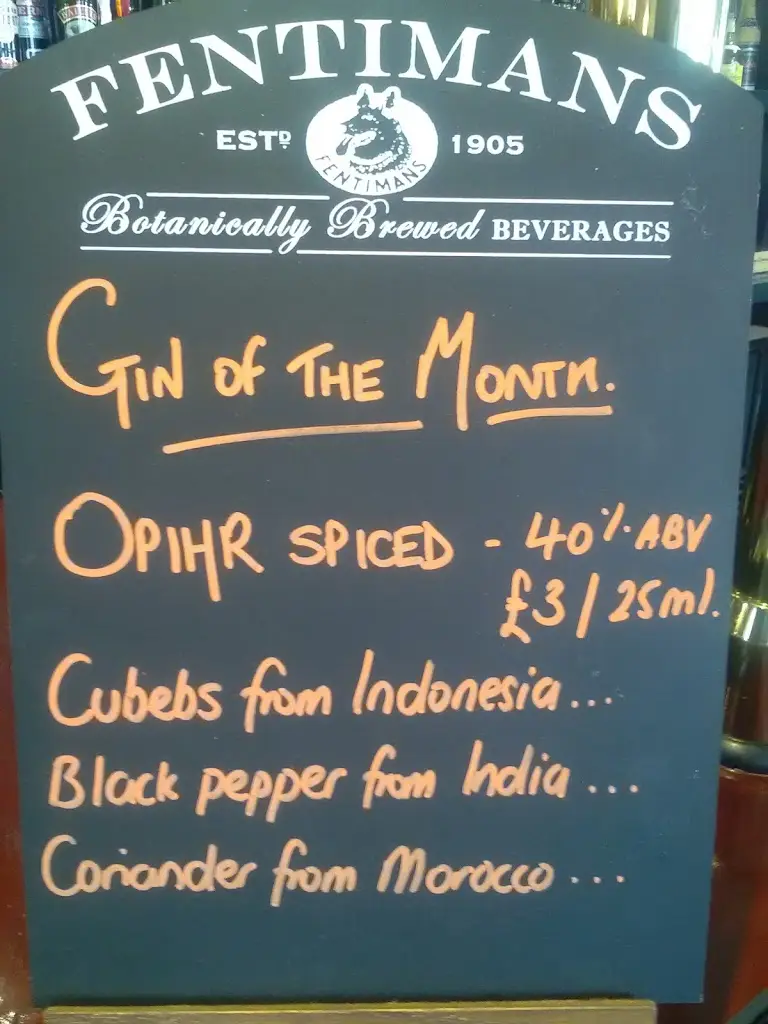 FENTIMANS
ESTD 1905
FENTIMANS
Botanically Brewed BEVERAGES
GIN OF THE MONTH.
OPIHR SPICED - 40% ABV
£3/25ml.
Cubebs from Indonesia...
Black pepper from India ...
Coriander from Morocco ...